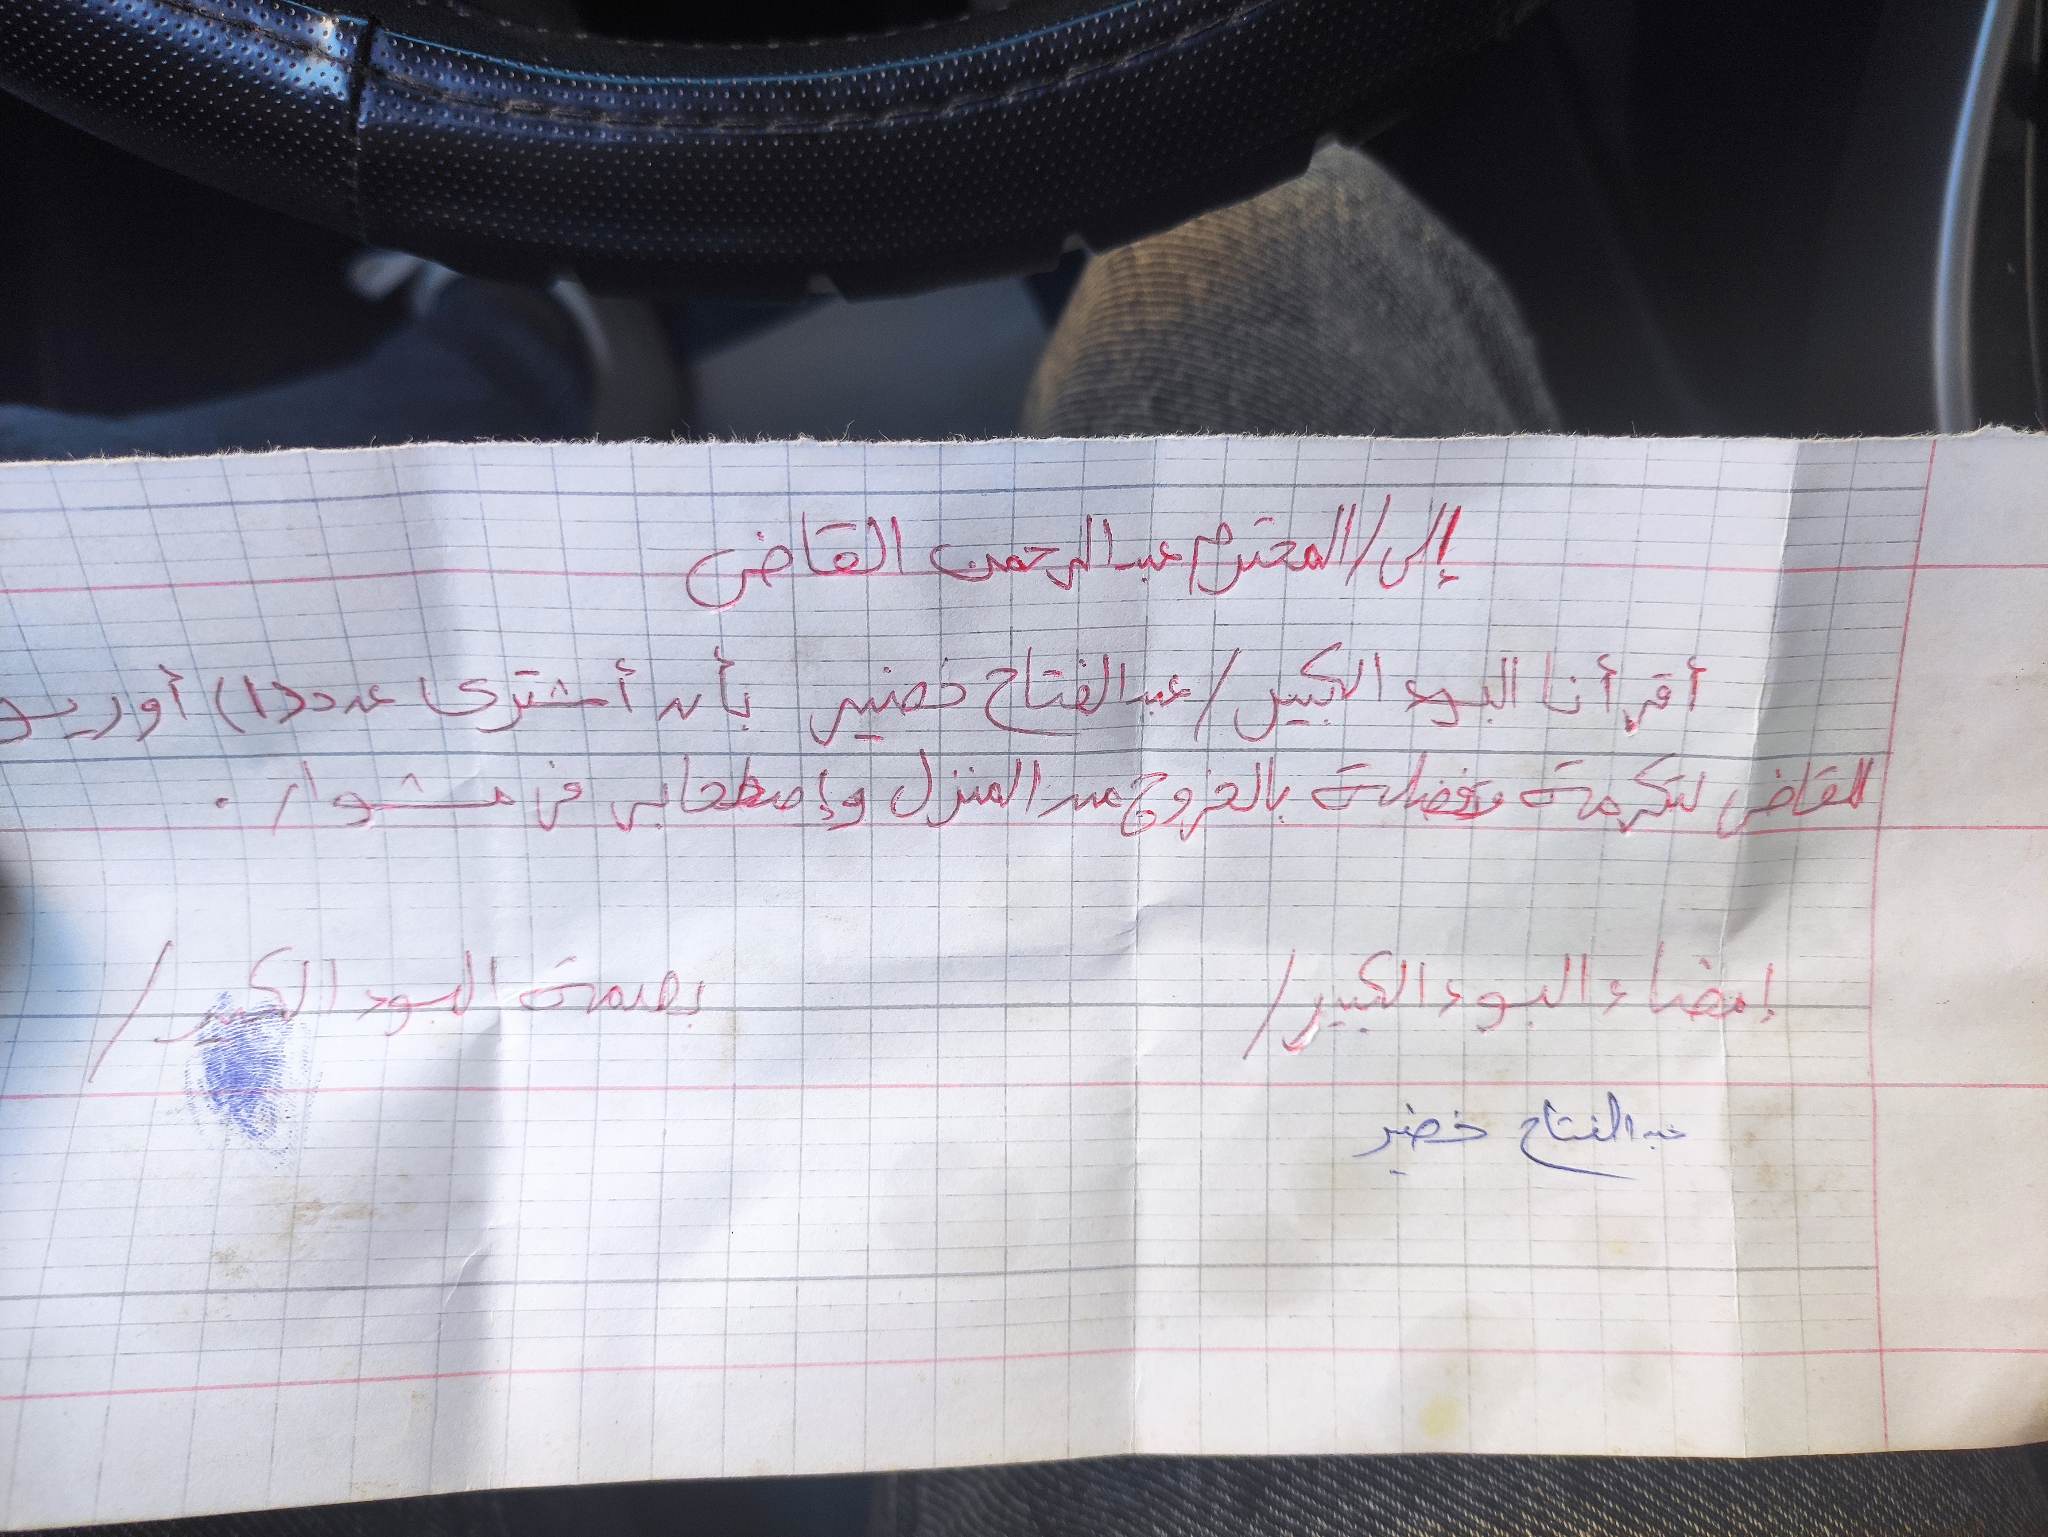 إلى/المحترم عبدالرحمن القاضي
أقر أنا البود الكبير/عبدالفتاح خضير بأن أشتري عدد(١) أوريو
للقاضي لتكرمة وتفضلة بالخروج من المنزل وإصطحابي في مشوار.
إمضاء البود الكبير/ بصمة البود الكبير/
عبدالفتاح خضير